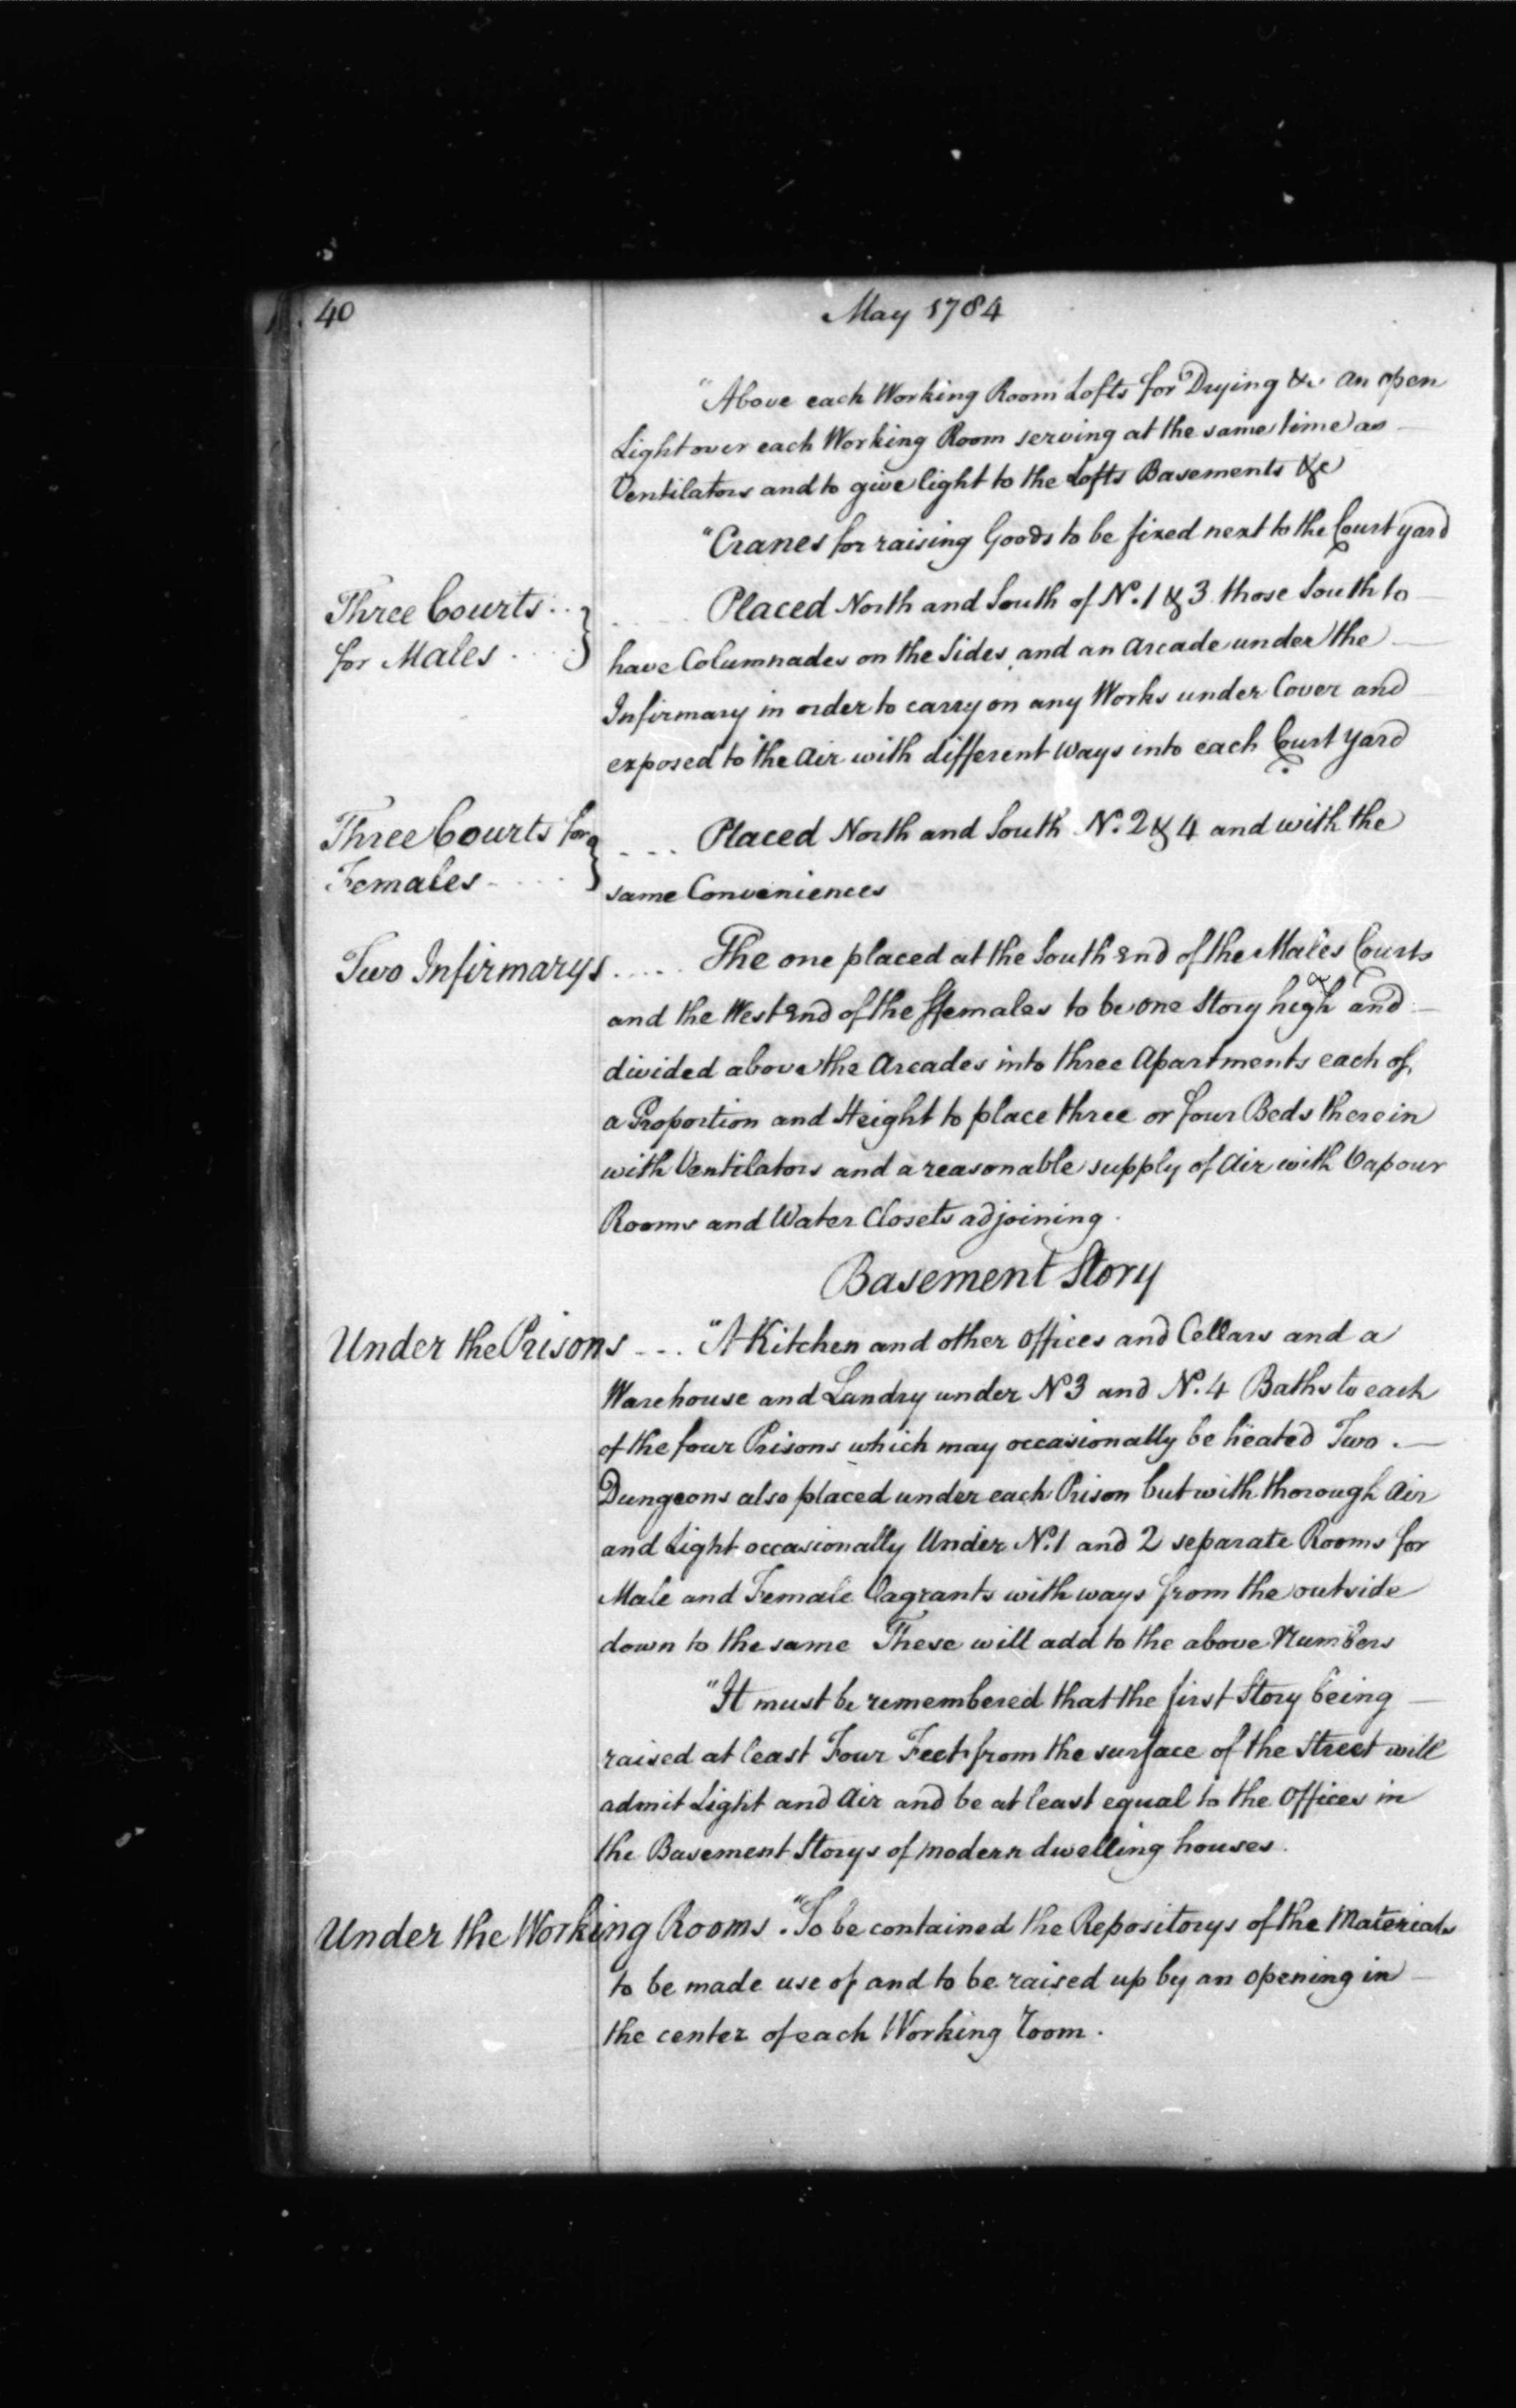 40
May 1784
"Above each Working Room Lofts for Drying &c an open
Light over each Working Room serving at the same time as
Ventilators and to give light to the Lofts Basements &c
"Cranes for raising Goods to be fixed next to the Court yard
Three Courts . .
for Males . . . . } . . . . . Placed North and South of No. 1 & 3 those South to
have Columnades on the Sides and an Arcade under the
Infirmary in order to carry on any Works under Cover and
exposed to the Air with different ways into each Court yard
Three Courts for
Females - . . . } - - - Placed North and South No. 2 & 4 and with the
same Conveniences
Two Infirmarys . . . . . The one placed at the South End of the Males Courts
and the West End of the ffemales to be one Story high and
divided above the Arcades into three Apartments each of
a Proportion and Height to place three or four Beds therein
with Ventilators and a reasonable supply of Air with Vapour
Rooms and Water Closets adjoining.
Basement Story
Under the Prisons - - . . "A Kitchen and other Offices and Cellars and a
Warehouse and Landry under No 3 and No. 4 Baths to each
of the four Prisons which may occasionally be heated Two . —
Dungeons also placed under each Prison but with thorough Air
and Light occasionally Under No. 1 and 2 separate Rooms for
Male and Female Vagrants with ways from the outside
down to the same These will add to the above Numbers
"It must be remembered that the first Story being
raised at least Four Feet from the surface of the Street will
admit Light and Air and be at least equal to the Offices in
the Basement Storys of modern dwelling houses.
Under the Working Rooms . "To be contained the Repositorys of the Materials
to be made use of and to be raised up by an opening in
the center of each Working Room.